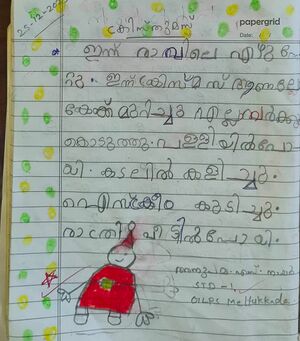 25-12-20
ക്രിസ്തുമസ്
papergrid
Date:
ഇന്ന് രാവിലെ എഴു
റ്റു. ഇന്ന് ക്രിസ്മസ് ആണല്ലോ
കേക്ക് മുറിച്ചു എല്ലാവർക്കും
കൊടുത്തു. പള്ളിയിൽ പോ
യി. കടലിൽ കളിച്ചു.
ഐസ്ക്രീം കുടിച്ചു.
രാത്രി വീട്ടിൽ പോയി.
STD - 1
GLPS Mellukkada